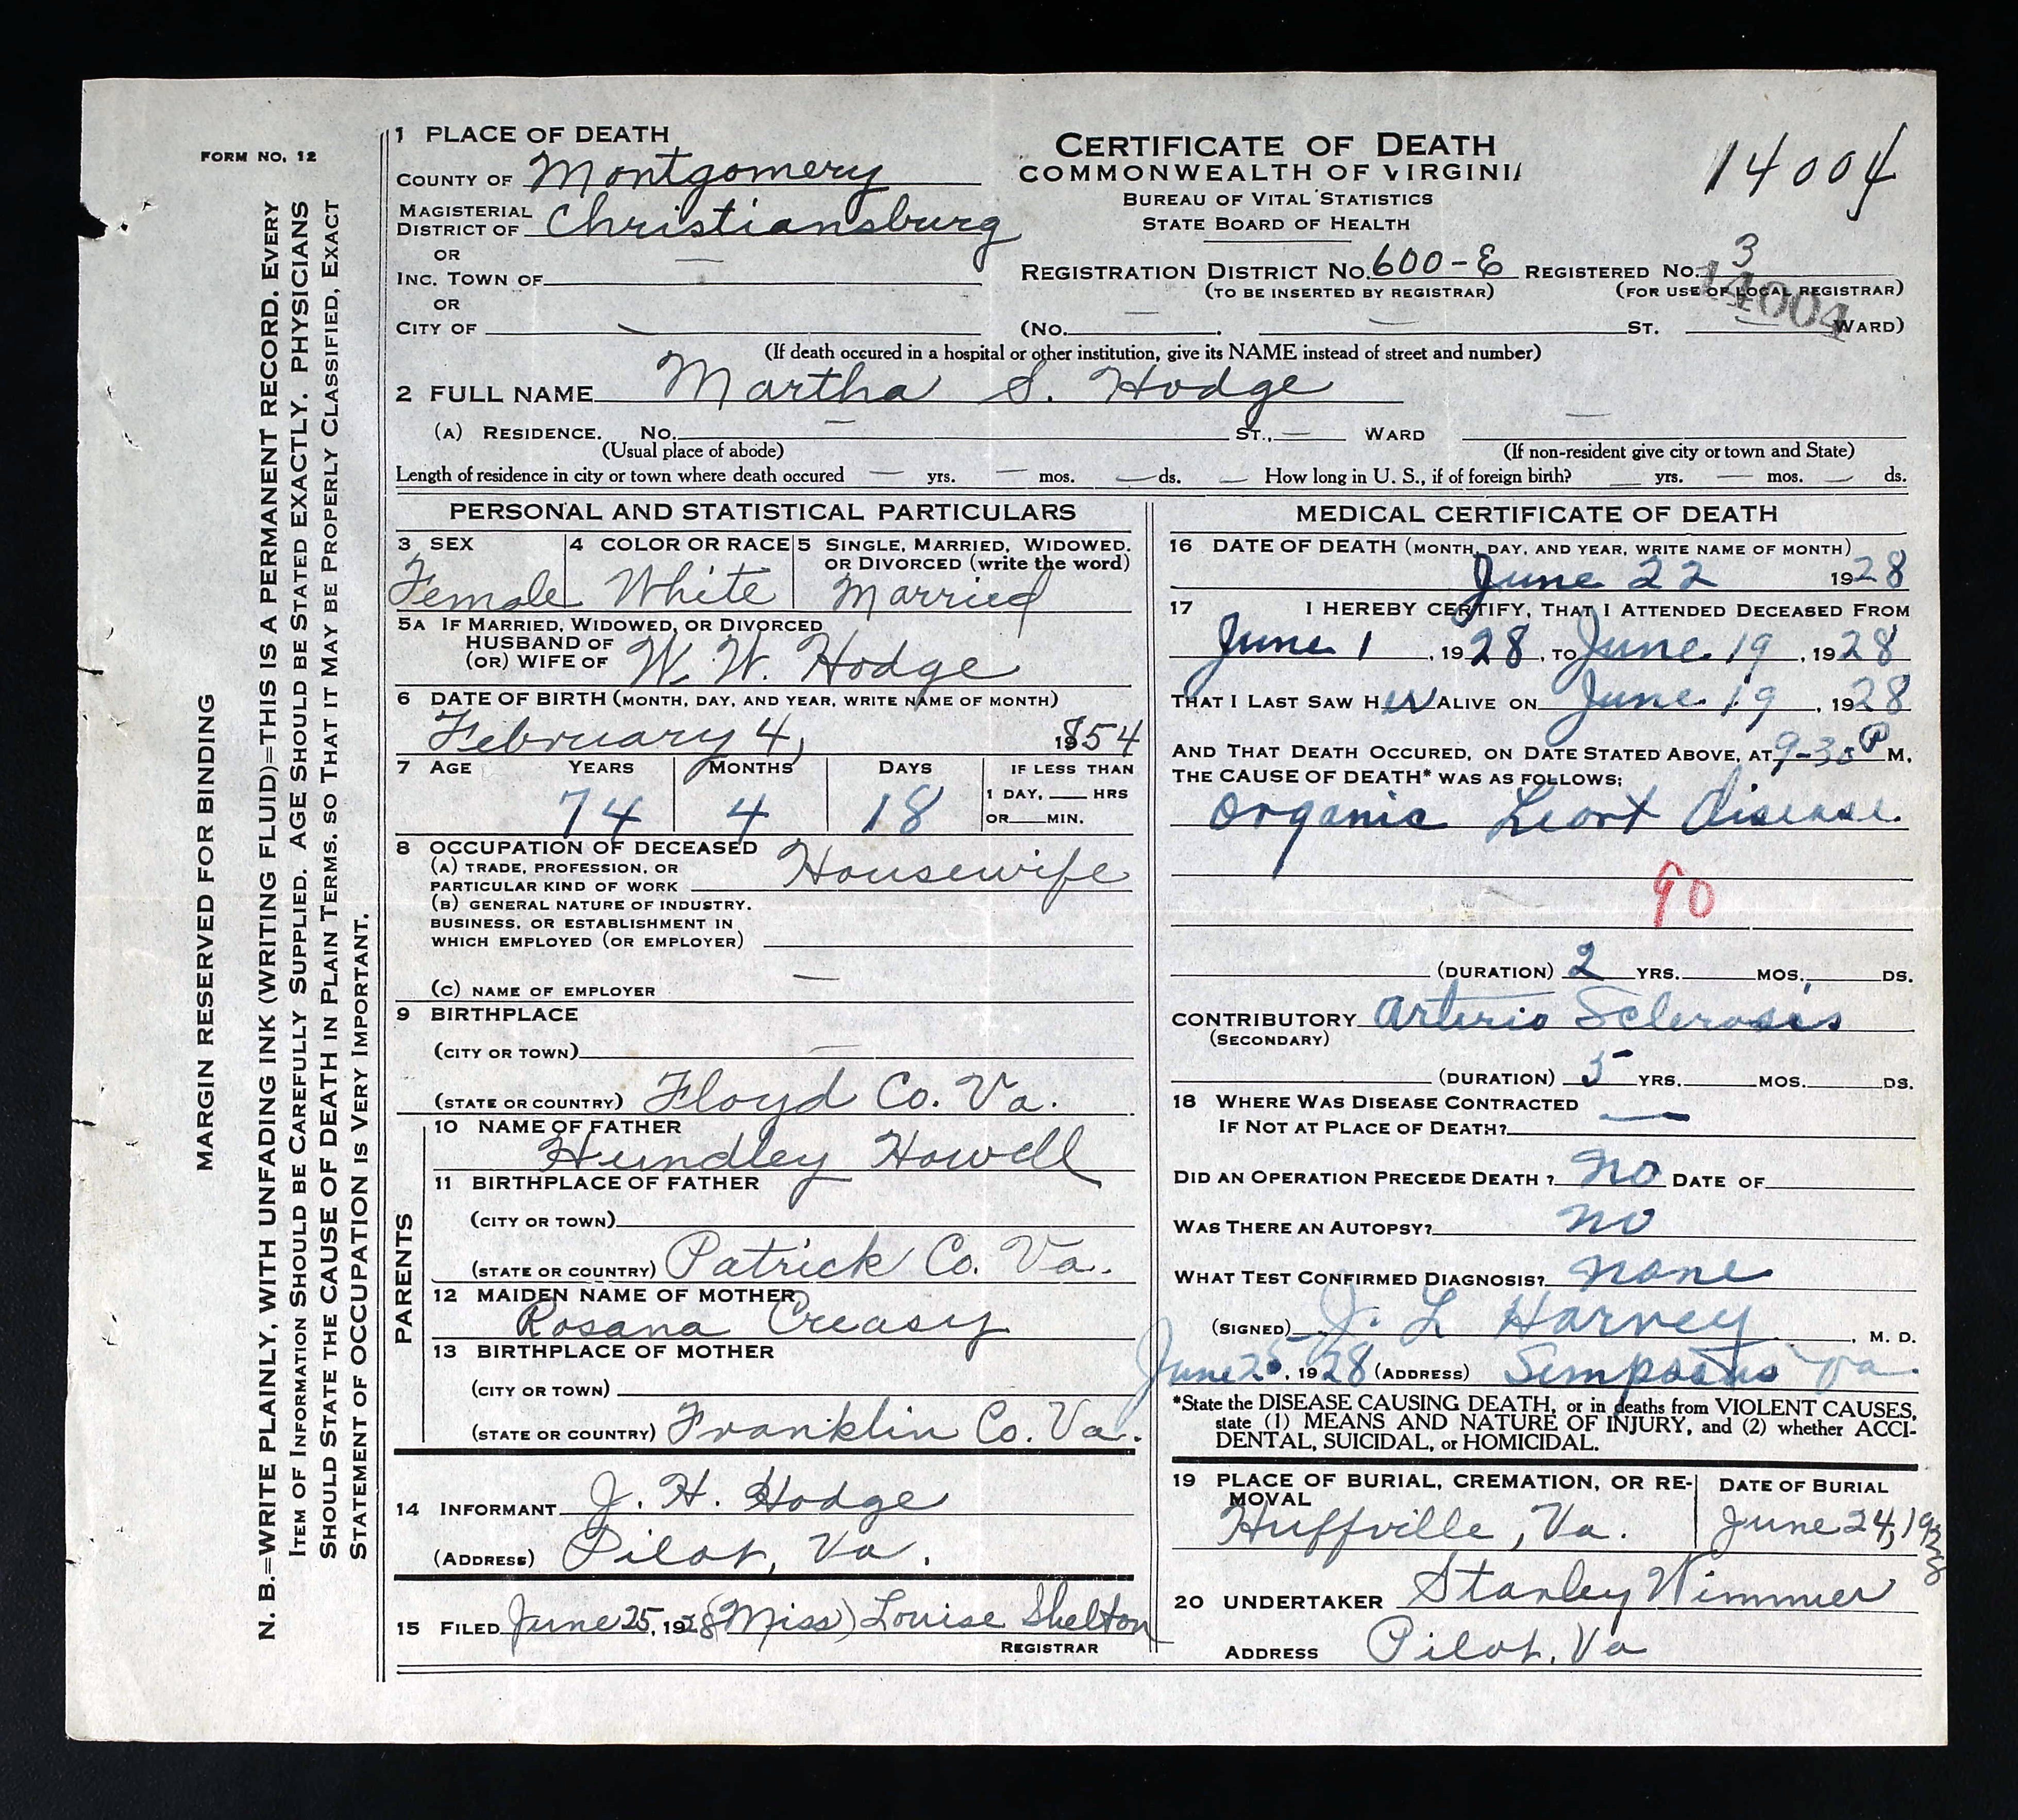 FORM NO. 12
MARGIN RESERVED FOR BINDING
N. B.=WRITE PLAINLY, WITH UNFADING INK (WRITING FLUID)=THIS IS A PERMANENT RECORD. EVERY
ITEM OF INFORMATION SHOULD BE CAREFULLY SUPPLIED. AGE SHOULD BE STATED EXACTLY. PHYSICIANS
SHOULD STATE THE CAUSE OF DEATH IN PLAIN TERMS. SO THAT IT MAY BE PROPERLY CLASSIFIED, EXACT
STATEMENT OF OCCUPATION IS VERY IMPORTANT.
1 PLACE OF DEATH
COUNTY OF Montgomery
MAGISTERIAL DISTRICT OF Christiansburg
OR
INC. TOWN OF —
OR
CITY OF —
CERTIFICATE OF DEATH
COMMONWEALTH OF VIRGINIA
BUREAU OF VITAL STATISTICS
STATE BOARD OF HEALTH
14004
REGISTRATION DISTRICT No. 600-E REGISTERED No. 3
(TO BE INSERTED BY REGISTRAR) (FOR USE OF LOCAL REGISTRAR)
14004
(No. — . — ST. — WARD)
(If death occured in a hospital or other institution, give its NAME instead of street and number)
2 FULL NAME Martha S. Hodge
(A) RESIDENCE. No. — ST., — WARD —
(Usual place of abode) (If non-resident give city or town and State)
Length of residence in city or town where death occured — yrs. — mos. — ds. — How long in U. S., if of foreign birth? — yrs. — mos. — ds.
PERSONAL AND STATISTICAL PARTICULARS
3 SEX
Female
4 COLOR OR RACE
White
5 SINGLE, MARRIED, WIDOWED.
OR DIVORCED (write the word)
Married
5A IF MARRIED, WIDOWED, OR DIVORCED
HUSBAND OF
(OR) WIFE OF W. W. Hodge
6 DATE OF BIRTH (MONTH, DAY, AND YEAR, WRITE NAME OF MONTH)
February 4, 1854
7 AGE YEARS MONTHS DAYS IF LESS THAN
74 4 18 1 DAY, HRS
OR MIN.
8 OCCUPATION OF DECEASED
(A) TRADE, PROFESSION, OR
PARTICULAR KIND OF WORK Housewife
(B) GENERAL NATURE OF INDUSTRY.
BUSINESS, OR ESTABLISHMENT IN
WHICH EMPLOYED (OR EMPLOYER)
(C) NAME OF EMPLOYER —
9 BIRTHPLACE
(CITY OR TOWN) —
(STATE OR COUNTRY) Floyd Co. Va.
PARENTS
10 NAME OF FATHER
Hundley Howell
11 BIRTHPLACE OF FATHER
(CITY OR TOWN)
(STATE OR COUNTRY) Patrick Co. Va.
12 MAIDEN NAME OF MOTHER
Rosana Creasy
13 BIRTHPLACE OF MOTHER
(CITY OR TOWN)
(STATE OR COUNTRY) Franklin Co. Va.
14 INFORMANT J. H. Hodge
(ADDRESS) Pilot, Va.
15 FILED June 25, 1928 (Miss) Louise Shelton
REGISTRAR
MEDICAL CERTIFICATE OF DEATH
16 DATE OF DEATH (MONTH, DAY, AND YEAR, WRITE NAME OF MONTH)
June 22 1928
17 I HEREBY CERTIFY, THAT I ATTENDED DECEASED FROM
June 1, 1928, TO June 19, 1928
THAT I LAST SAW HER ALIVE ON June 19, 1928
AND THAT DEATH OCCURED, ON DATE STATED ABOVE, AT 9-30 P M.
THE CAUSE OF DEATH* WAS AS FOLLOWS;
Organic Heart disease
90
(DURATION) 2 YRS. MOS. DS.
CONTRIBUTORY Arterio Sclerosis
(SECONDARY)
(DURATION) 5 YRS. MOS. DS.
18 WHERE WAS DISEASE CONTRACTED
IF NOT AT PLACE OF DEATH? —
DID AN OPERATION PRECEDE DEATH ? no DATE OF
WAS THERE AN AUTOPSY? no
WHAT TEST CONFIRMED DIAGNOSIS? none
(SIGNED) J. L Harvey, M. D.
June 25, 1928 (ADDRESS) Simpsons Va.
*State the DISEASE CAUSING DEATH, or in deaths from VIOLENT CAUSES,
state (1) MEANS AND NATURE OF INJURY, and (2) whether ACCI-
DENTAL, SUICIDAL, or HOMICIDAL.
19 PLACE OF BURIAL, CREMATION, OR RE-
MOVAL
Huffville, Va.
DATE OF BURIAL
June 24, 1928
20 UNDERTAKER Stanley Wimmer
ADDRESS Pilot, Va